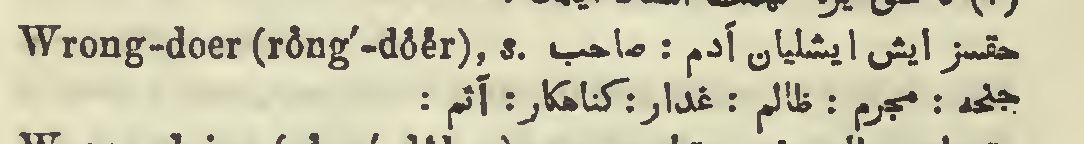 Wrong-doer (rông′-dôēr), s. حقسز ايش ايشليان آدم : صاحب
جنحه : مجرم : ظالم : غدار : كناهكار : آثم :